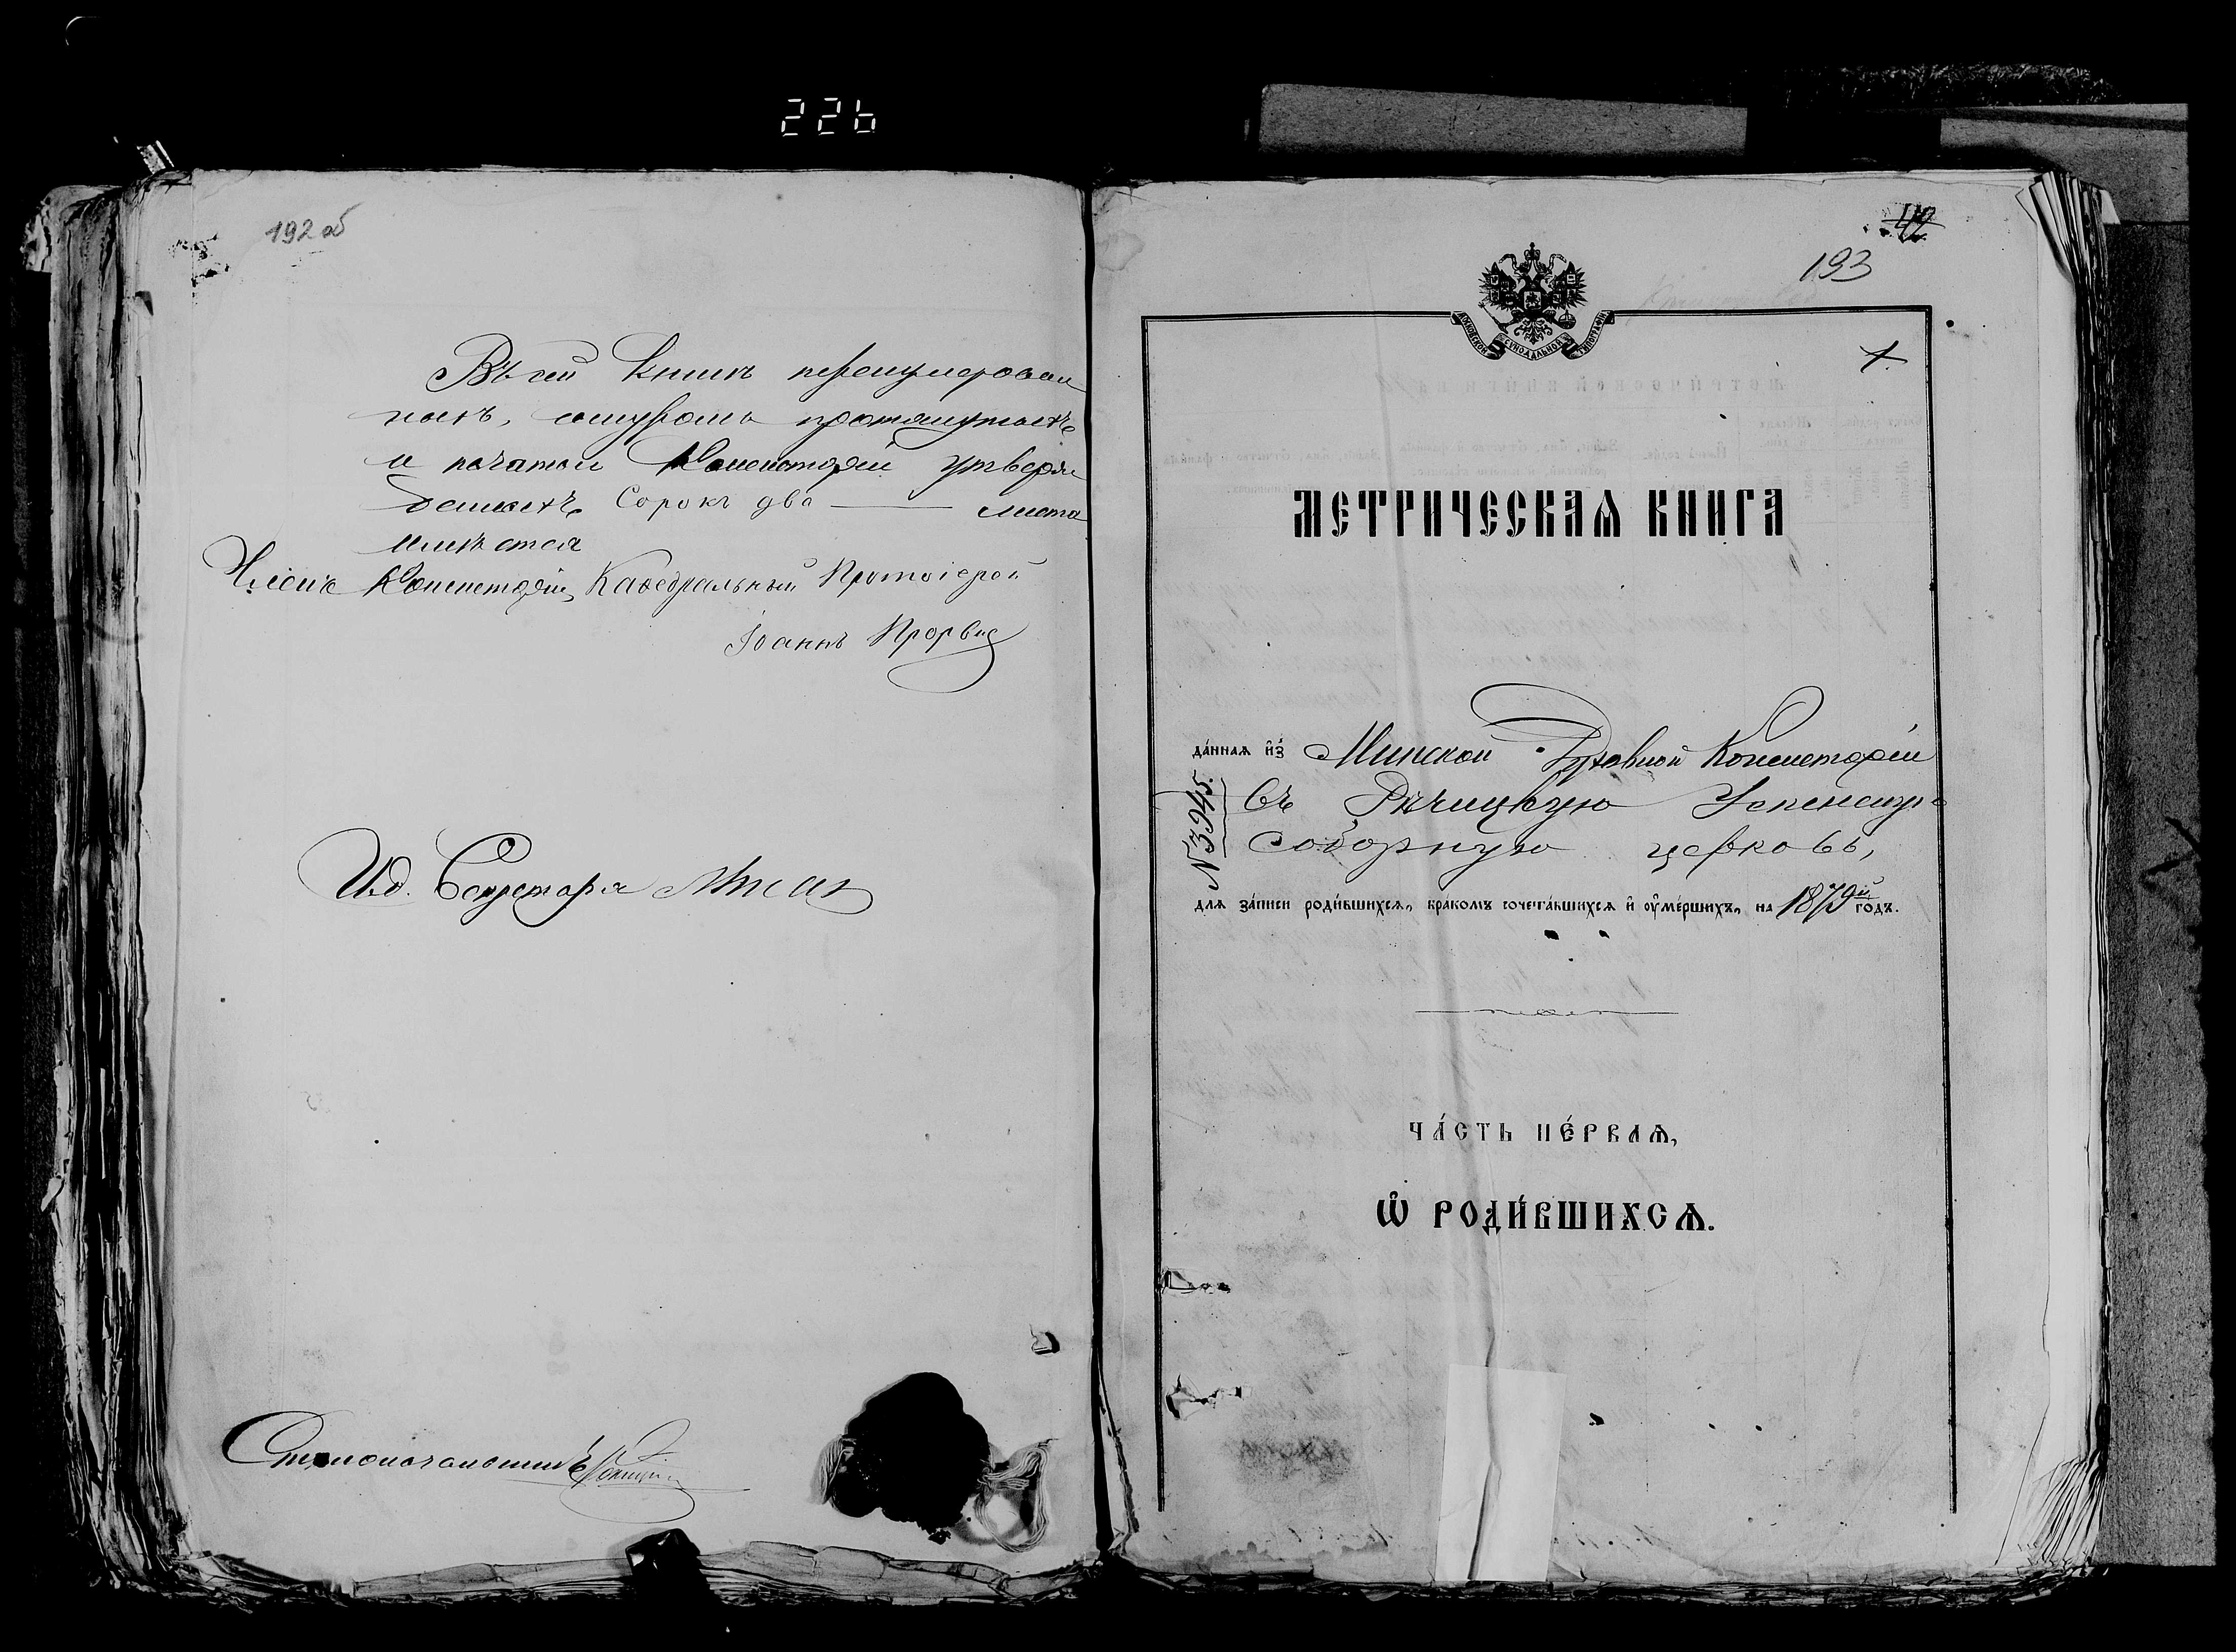 226
192 об
Въ сей книгѣ перенумерован-
ныхъ, шнуромъ протянутыхъ
и печатью Консисторіи утверж-
денныхъ Сорокъ два — листа
имѣется
Членъ Консисторіи, Каѳедральный Протоіерей
Іоаннъ
И.д. Секретаря
Столоначальникъ
42
193
МОСКОВСКОЙ СѴНОДАЛЬНОЙ ТИПОГРАФІИ
1.
МЕТРИЧЕСКАѦ КНИГА
да́ннаѧ и҆з̾ Минской Духовной Консисторіи
въ Рѣчицкую Успенскую
соборную церковь,
№ 3945.
для за́писи роди́вшихсѧ, бракомъ сочета́вшихсѧ и҆ ᲂу҆ме́ршихъ, на 1879й го́дъ.
ЧА́СТЬ ПЕ́РВАѦ,
Ѽ РОДИ́ВШИХСѦ.